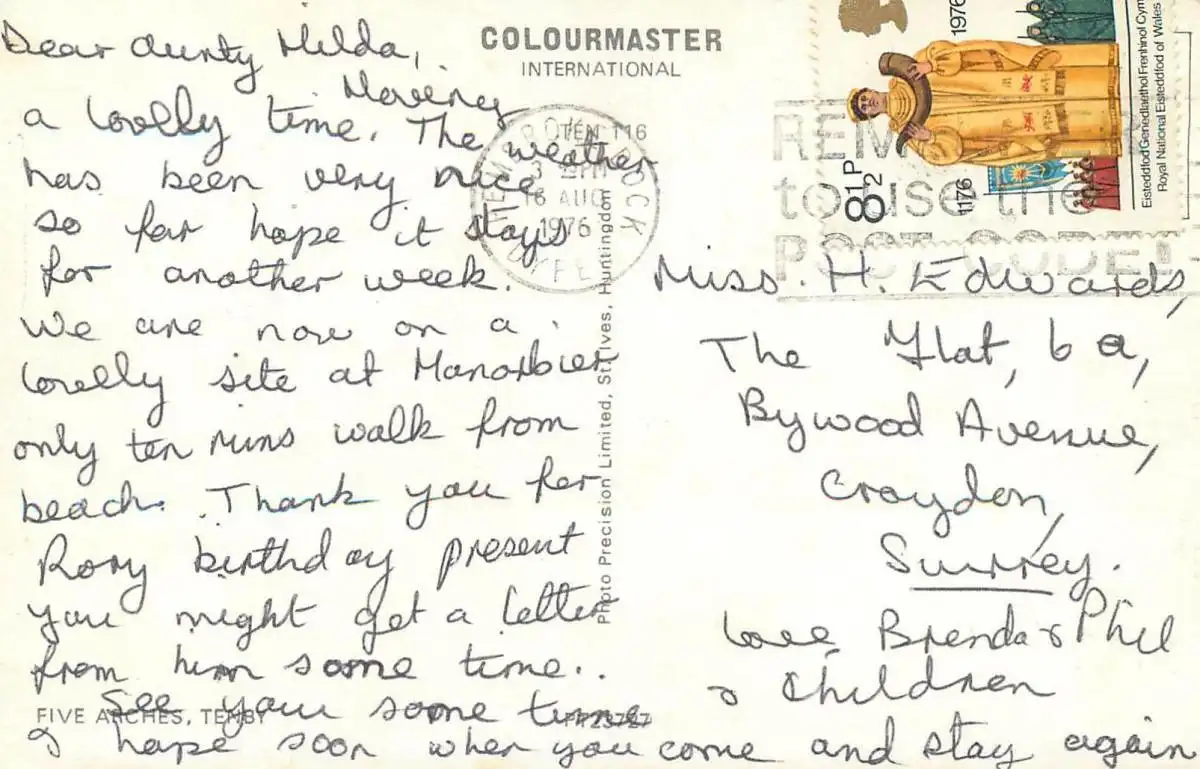 Dear Aunty Hilda,
Having
a lovelly time. The weather
has been very nice
so far hope it stays
for another week.
We are now on a
lovelly site at Manorbier
only ten mins walk from
beach. Thank you for
Rory birthday present
you might get a letter
from him some time..
See you some time
& hope soon when you come and stay again
love Brenda & Phil
& children
Miss. H. Edwards,
The Flat, 6 a,
Bywood Avenue,
Croydon,
Surrey.
COLOURMASTER
INTERNATIONAL
Photo Precision Limited, St. Ives, Huntingdon
FIVE ARCHES, TENBY
TEN 116
16 AUG
1976
REMEMBER
to use the
POST CODE
1976
1176
8½P
Eisteddfod Genedlaethol Frenhinol Cym
Royal National Eisteddfod of Wales